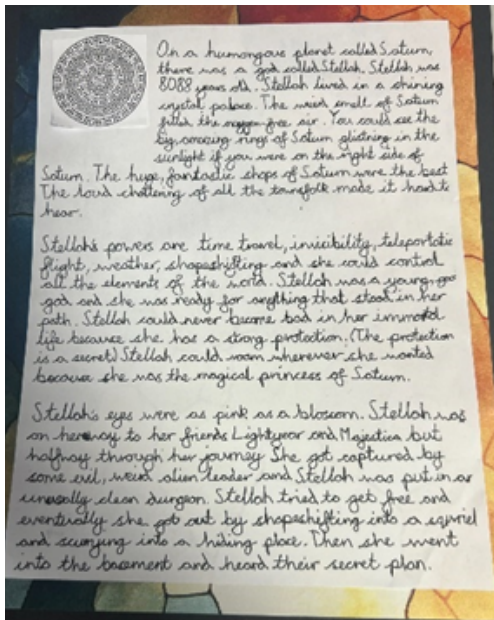 On a humongous planet called Saturn,
there was a god called Stellah. Stellah was
8088 years old. Stellah lived in a shining
crystal palace. The weird smell of Saturn
filled the oxygen free air. You could see the
big, amazing rings of Saturn glistning in the
sunlight if you were on the right side of
Saturn. The huge, fantastic shops of Saturn were the best
The loud chattering of all the townfolk made it hard to
hear.
Stellah's powers are time travel, invicibility, teleportatic
flight, weather, shapeshifting and she could control
all the elements of the world. Stellah was a young
god and she was ready for anything that stood in her
path. Stellah could never become bad in her immortal
life because she has a strong protection. (The protection
is a secret) Stellah could roam wherever she wanted
because she was the magical princess of Saturn.
Stellah's eyes were as pink as a blossom. Stellah was
on her way to her friends Lightyear and Majestica but
halfway through her journey She got captured by
some evil, weird alien leader and Stellah was put in an
unusally clean dungeon. Stellah tried to get free and
eventurally she got out by shapeshifting into a squriel
and scurrying into a hiding place. Then she went
into the basement and heard their secret plan.